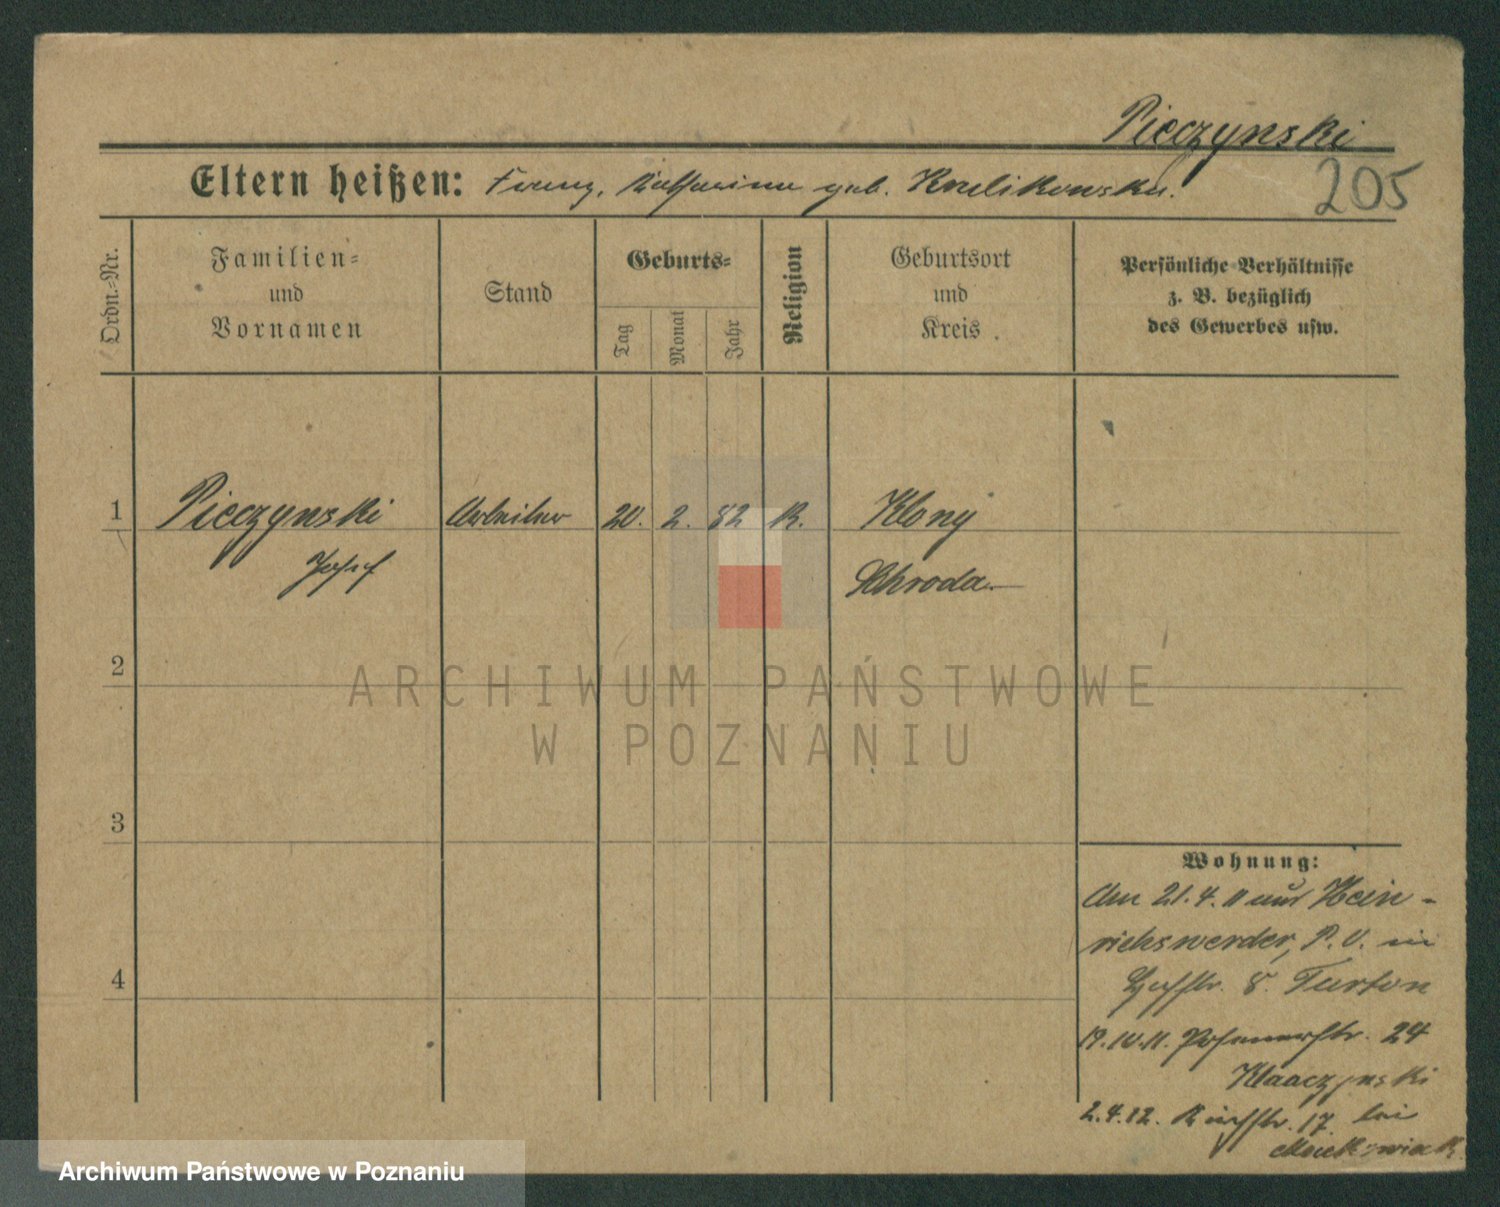 Pieczynski
Eltern heißen: Franz, Katharina geb. Krulikowska.
205
Ordn.-Nr.
Familien-
und
Vornamen
Stand
Geburts-
Tag
Monat
Jahr
Religion
Geburtsort
und
Kreis
Persönliche Verhältnisse
z. B. bezüglich
des Gewerbes usw.
1 Pieczynski Arbeiter 20. 2. 82 K. Klony
Josef Schroda
2
ARCHIWUM PAŃSTWOWE
W POZNANIU
3
Wohnung:
Am 21.4.11 aus Hein-
richswerder, P. V. in
8. Furton
4
19.10.11. Posenerstr. 24
2.4.12. 17 bei
Archiwum Państwowe w Poznaniu